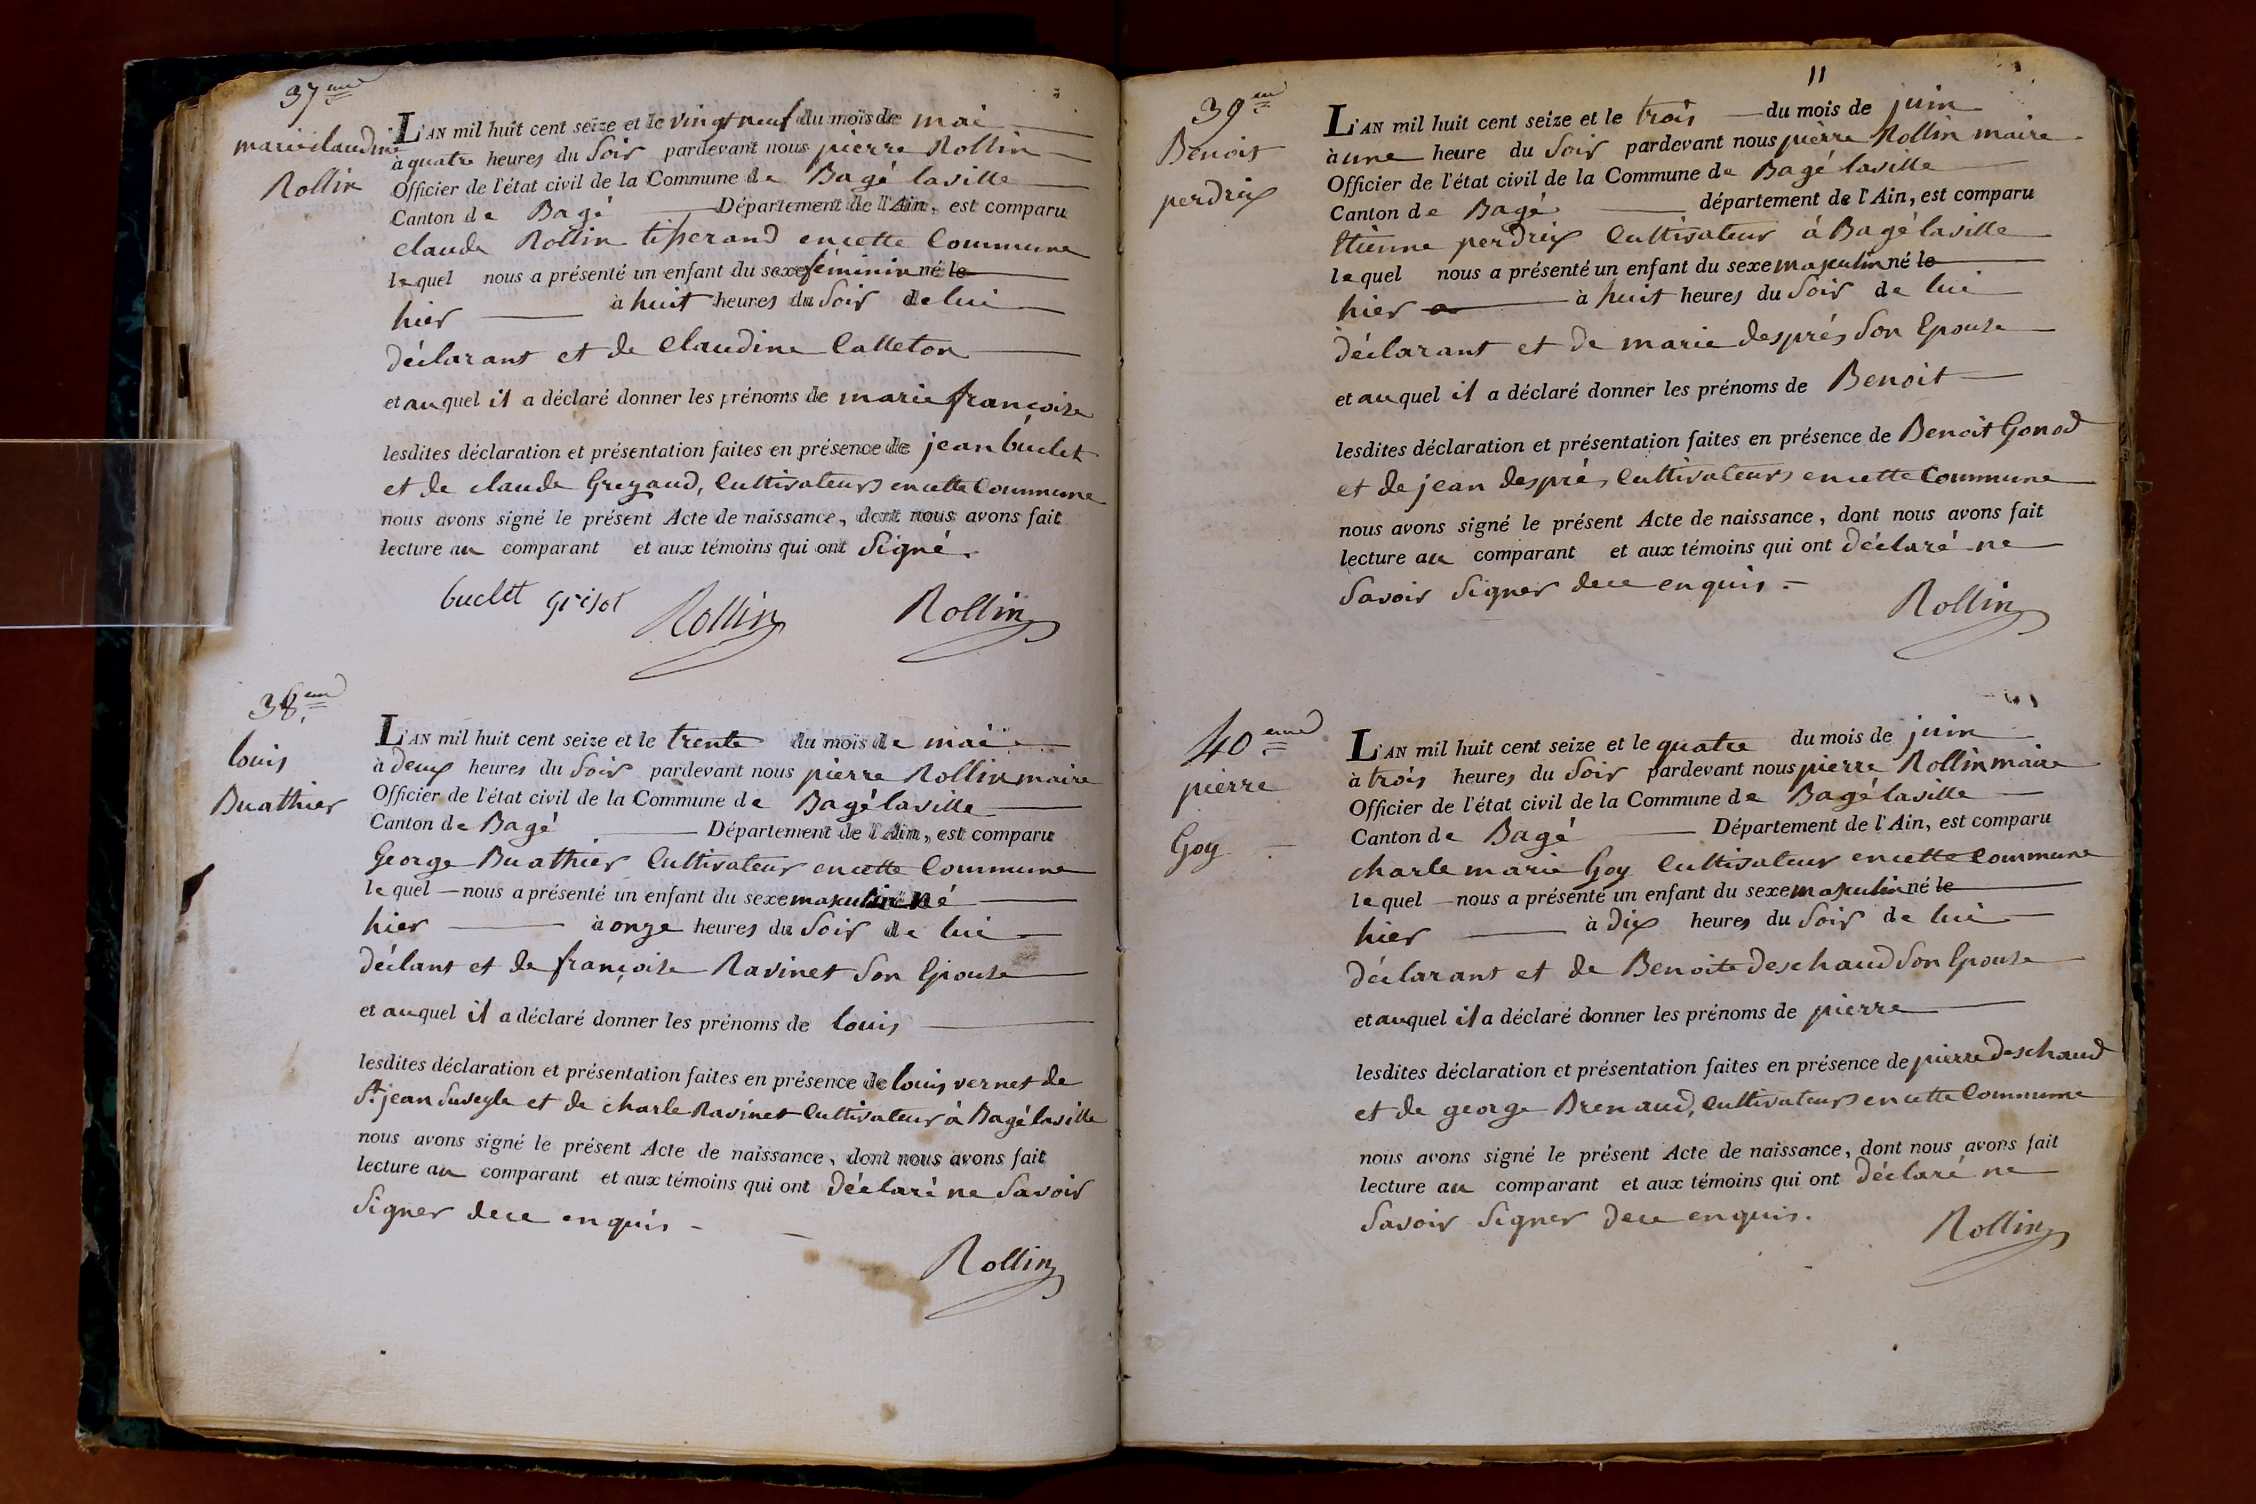 37eme
marie claudine
Rollin
L'AN mil huit cent seize et le vingt neuf du mois de mai
à quatre heures du soir pardevant nous pierre Rollin
Officier de l'état civil de la Commune de Bagé laville
Canton de Bagé Département de l'Ain, est comparu
claude Rollin tisserand en cette Commune
lequel nous a présenté un enfant du sexe féminin né le
hier à huit heures du soir de lui
déclarant et de Claudine Catleton
et auquel il a déclaré donner les prénoms de marie françoise
lesdites déclaration et présentation faites en présence de jean buclet
et de claude Gregaud, Cultivateurs en cette Commune
nous avons signé le présent Acte de naissance, dont nous avons fait
lecture au comparant et aux témoins qui ont Signé.
buclet grisot Rollin Rollin
38.eme
louis
Buathier
L'AN mil huit cent seize et le trente du mois de mai
à deux heures du soir pardevant nous pierre Rollin maire
Officier de l'état civil de la Commune de Bagé laville
Canton de Bagé Département de l'Ain, est comparu
George Buathier Cultivateur en cette Commune
lequel nous a présenté un enfant du sexe masculin né
hier à onze heures du soir de lui
déclant et de françoise Ravinet son Epouse
et auquel il a déclaré donner les prénoms de louis
lesdites déclaration et présentation faites en présence de louis vernet de
St jean Suseyle et de charle Ravinet Cultivateur à Bagé laville
nous avons signé le présent Acte de naissance, dont nous avons fait
lecture au comparant et aux témoins qui ont déclaré ne savoir
signer de ce enquis
Rollin
11
39eme
Benoit
perdrix
L'AN mil huit cent seize et le trois du mois de juin
à une heure du soir pardevant nous pierre Rollin maire
Officier de l'état civil de la Commune de Bagé laville
Canton de Bagé département de l'Ain, est comparu
Etienne perdrix Cultivateur à Bagé laville
lequel nous a présenté un enfant du sexe masculin né le
hier à huit heures du soir de lui
déclarant et de marie desprès son Epouse
et auquel il a déclaré donner les prénoms de Benoit
lesdites déclaration et présentation faites en présence de Benoit Gonod
et de jean desprès Cultivateurs en cette Commune
nous avons signé le présent Acte de naissance, dont nous avons fait
lecture au comparant et aux témoins qui ont déclaré ne
savoir signer de ce enquis
Rollin
40eme
pierre
Goy
L'AN mil huit cent seize et le quatre du mois de juin
à trois heures du soir pardevant nous pierre Rollin maire
Officier de l'état civil de la Commune de Bagé laville
Canton de Bagé Département de l'Ain, est comparu
charle marie Goy Cultivateur en cette Commune
lequel nous a présenté un enfant du sexe masculin né le
hier à dix heures du soir de lui
déclarant et de Benoite deschaud son Epouse
et auquel il a déclaré donner les prénoms de pierre
lesdites déclaration et présentation faites en présence de pierre deschaud
et de george Brenaud, Cultivateurs en cette Commune
nous avons signé le présent Acte de naissance, dont nous avons fait
lecture au comparant et aux témoins qui ont déclaré ne
savoir signer de ce enquis.
Rollin